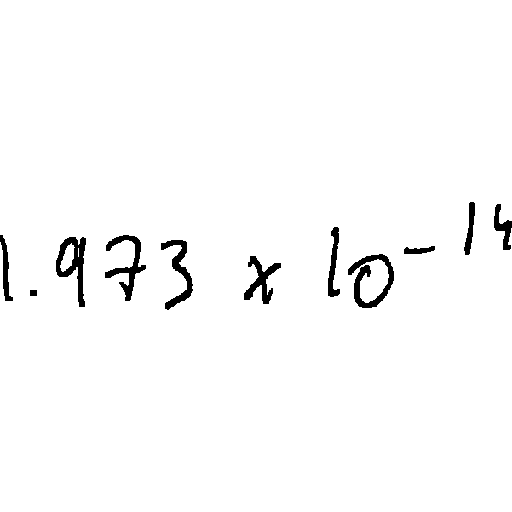 1.973 x 10^-14